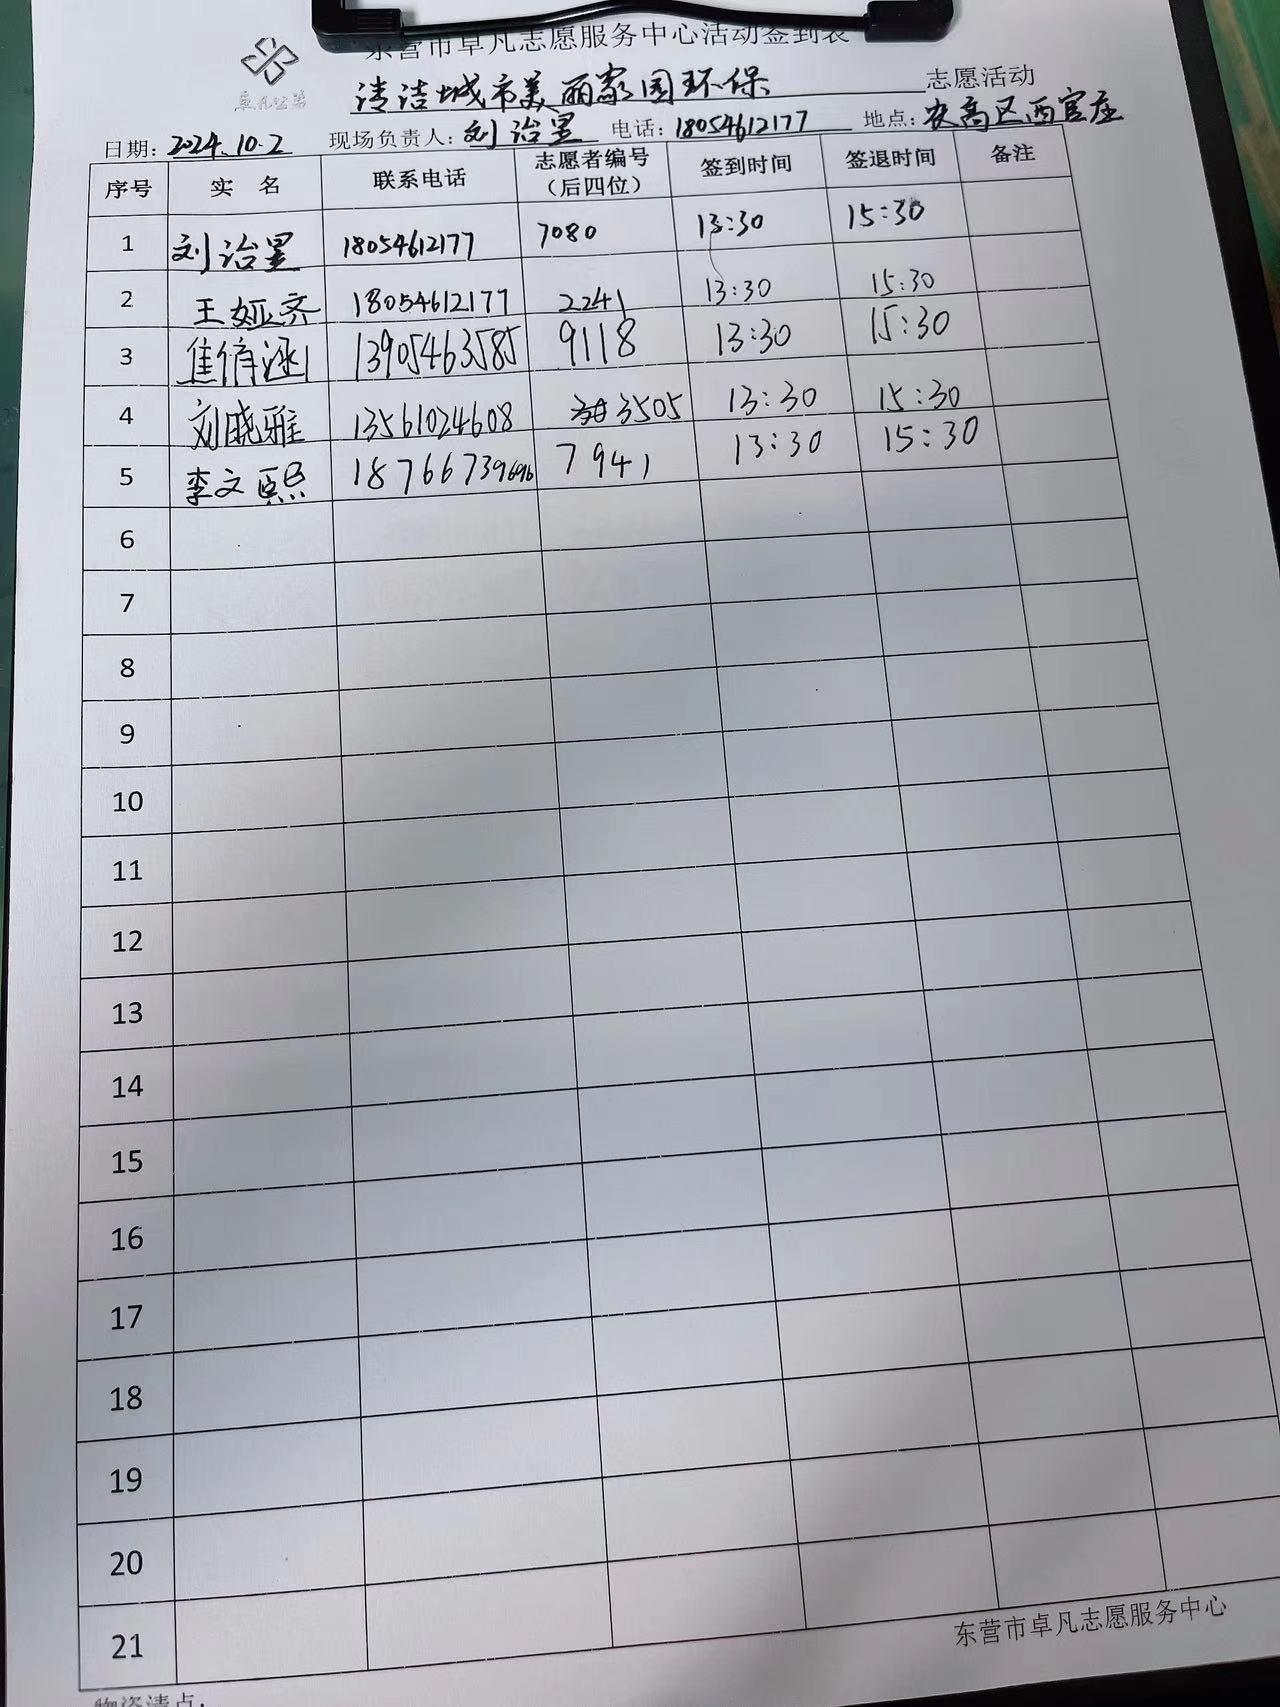 东营市卓凡志愿服务中心活动签到表
卓凡公益
清洁城市美丽家园环保 志愿活动
日期: 2024.10.2 现场负责人: 刘治昱 电话: 18054612177 地点: 农高区西官庄
序号 实 名 联系电话 志愿者编号（后四位） 签到时间 签退时间 备注
1 刘治昱 18054612177 7080 13:30 15:30
2 王娅齐 18054612177 2241 13:30 15:30
3 焦倩涵 13905463585 9118 13:30 15:30
4 刘晓雅 13561024608 3505 13:30 15:30
5 李文熙 18766739696 7941 13:30 15:30
6
7
8
9
10
11
12
13
14
15
16
17
18
19
20
21
东营市卓凡志愿服务中心
物资清点: